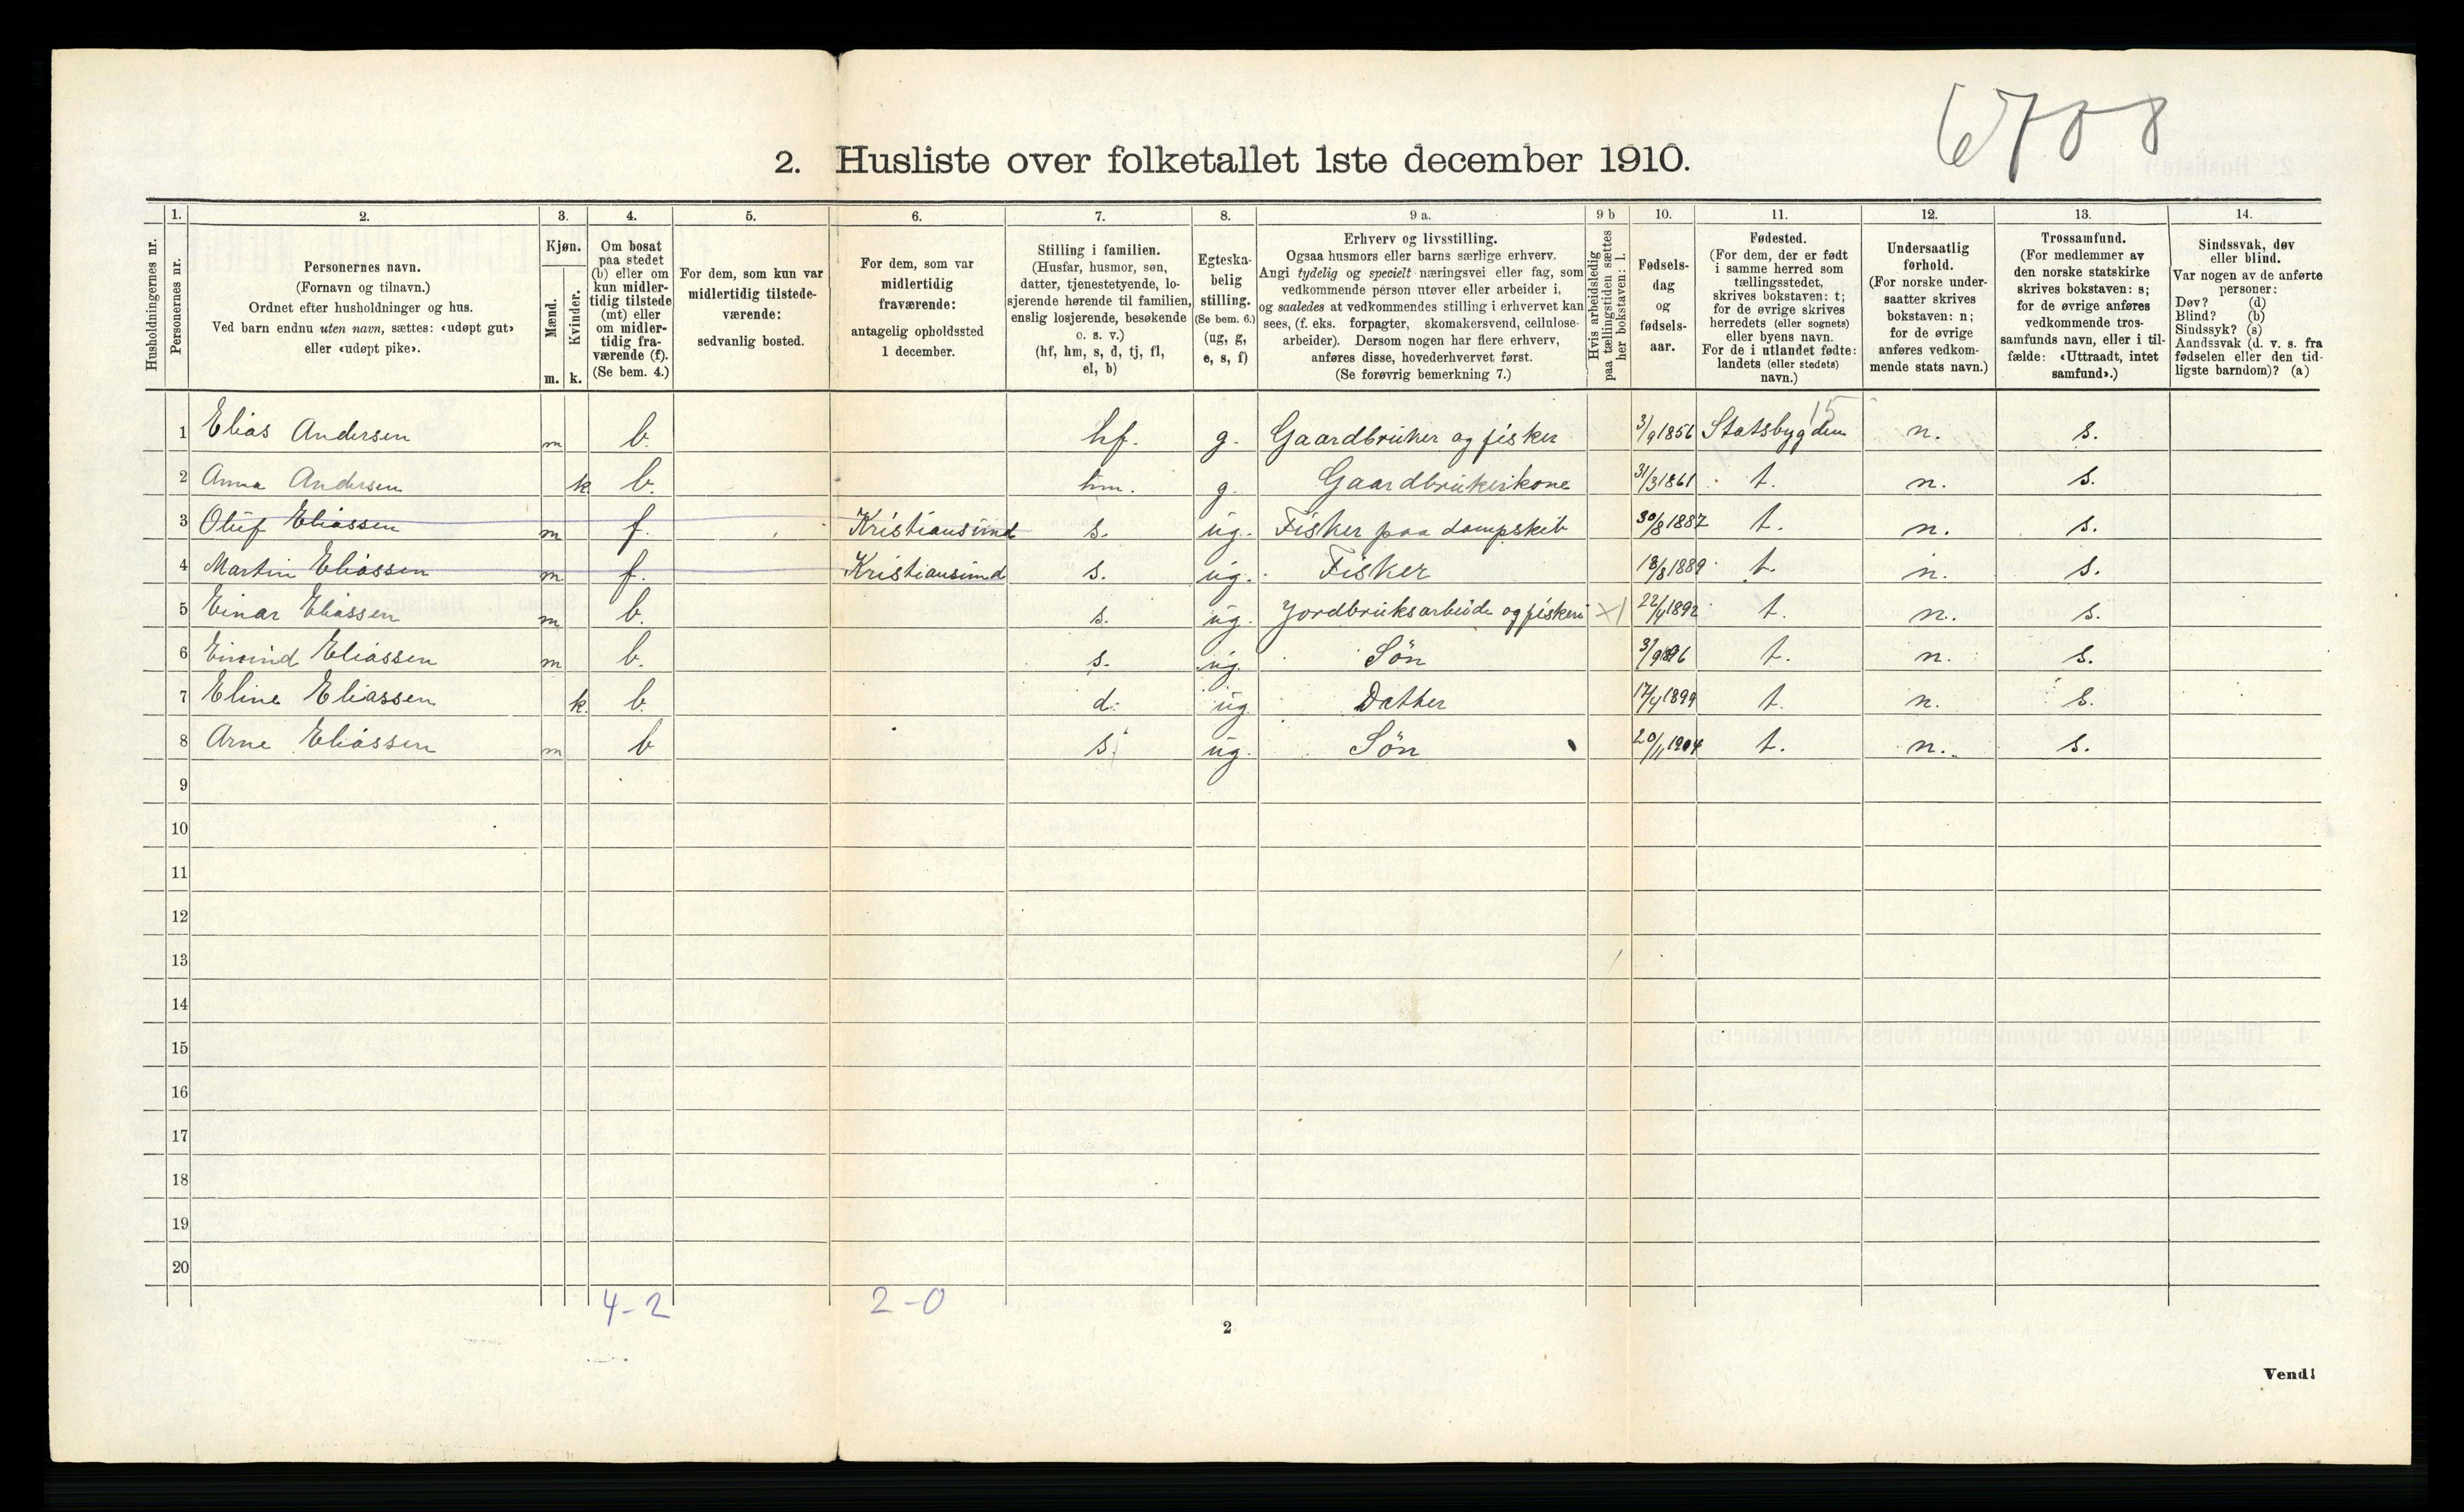 6708
2. Husliste over folketallet 1ste december 1910.
Husholdningernes nr.
1.
Personernes nr.
2.
Personernes navn.
(Fornavn og tilnavn.)
Ordnet efter husholdninger og hus.
Ved barn endnu uten navn, sættes: «udøpt gut»
eller «udøpt pike».
3.
Kjøn.
Mænd.
Kvinder.
m. k.
4.
Om bosat
paa stedet
(b) eller om
kun midler-
tidig tilstede
(mt) eller
om midler-
tidig fra-
værende (f).
(Se bem. 4.)
5.
For dem, som kun var
midlertidig tilstede-
værende:
sedvanlig bosted.
6.
For dem, som var
midlertidig
fraværende:
antagelig opholdssted
1 december.
7.
Stilling i familien.
(Husfar, husmor, søn,
datter, tjenestetyende, lo-
sjerende hørende til familien,
enslig losjerende, besøkende
o. s. v.)
(hf, hm, s, d, tj, fl,
el, b)
8.
Egteska-
belig
stilling.
(Se bem. 6.)
(ug, g,
e, s, f)
9 a.
Erhverv og livsstilling.
Ogsaa husmors eller barns særlige erhverv.
Angi tydelig og specielt næringsvei eller fag, som
vedkommende person utøver eller arbeider i,
og saaledes at vedkommendes stilling i erhvervet kan
sees, (f. eks. forpagter, skomakersvend, cellulose-
arbeider). Dersom nogen har flere erhverv,
anføres disse, hovederhvervet først.
(Se forøvrig bemerkning 7.)
9 b
Hvis arbeidsledig
paa tællingstiden sættes
her bokstaven: l.
10.
Fødsels-
dag
og
fødsels-
aar.
11.
Fødested.
(For dem, der er født
i samme herred som
tællingsstedet,
skrives bokstaven: t;
for de øvrige skrives
herredets (eller sognets)
eller byens navn.
For de i utlandet fødte:
landets (eller stedets)
navn.)
12.
Undersaatlig
forhold.
(For norske under-
saatter skrives
bokstaven: n;
for de øvrige
anføres vedkom-
mende stats navn.)
13.
Trossamfund.
(For medlemmer av
den norske statskirke
skrives bokstaven: s;
for de øvrige anføres
vedkommende tros-
samfunds navn, eller i til-
fælde: «Uttraadt, intet
samfund».)
14.
Sindssvak, døv
eller blind.
Var nogen av de anførte
personer:
Døv? (d)
Blind? (b)
Sindssyk? (s)
Aandssvak (d. v. s. fra
fødselen eller den tid-
ligste barndom)? (a)
15
1 Elias Andersen m b. hf. g. Gaardbruker og fisker 3/9 1856 Statsbygden n. s.
2 Anna Andersen k b. hm. g. Gaardbrukerkone 31/3 1861 t. n. s.
3 Oluf Eliassen m f. Kristiansund s. ug. Fisker paa dampskib 30/8 1887 t. n. s.
4 Martin Eliassen m f. Kristiansund s. ug. Fisker 18/8 1889 t. n. s.
5 Einar Eliassen m b. s. ug. Jordbruksarbeide og fiskeri 22/4 1892 t. n. s.
6 Eivind Eliassen m b. s. ug. Søn 3/9 1896 t. n. s.
7 Eline Eliassen k. b. d. ug. Datter 17/4 1899 t. n. s.
8 Arne Eliassen m b s. ug. Søn 20/1 1904 t. n. s.
9
10
11
12
13
14
15
16
17
18
19
20
4-2 2-0
2
Vend!